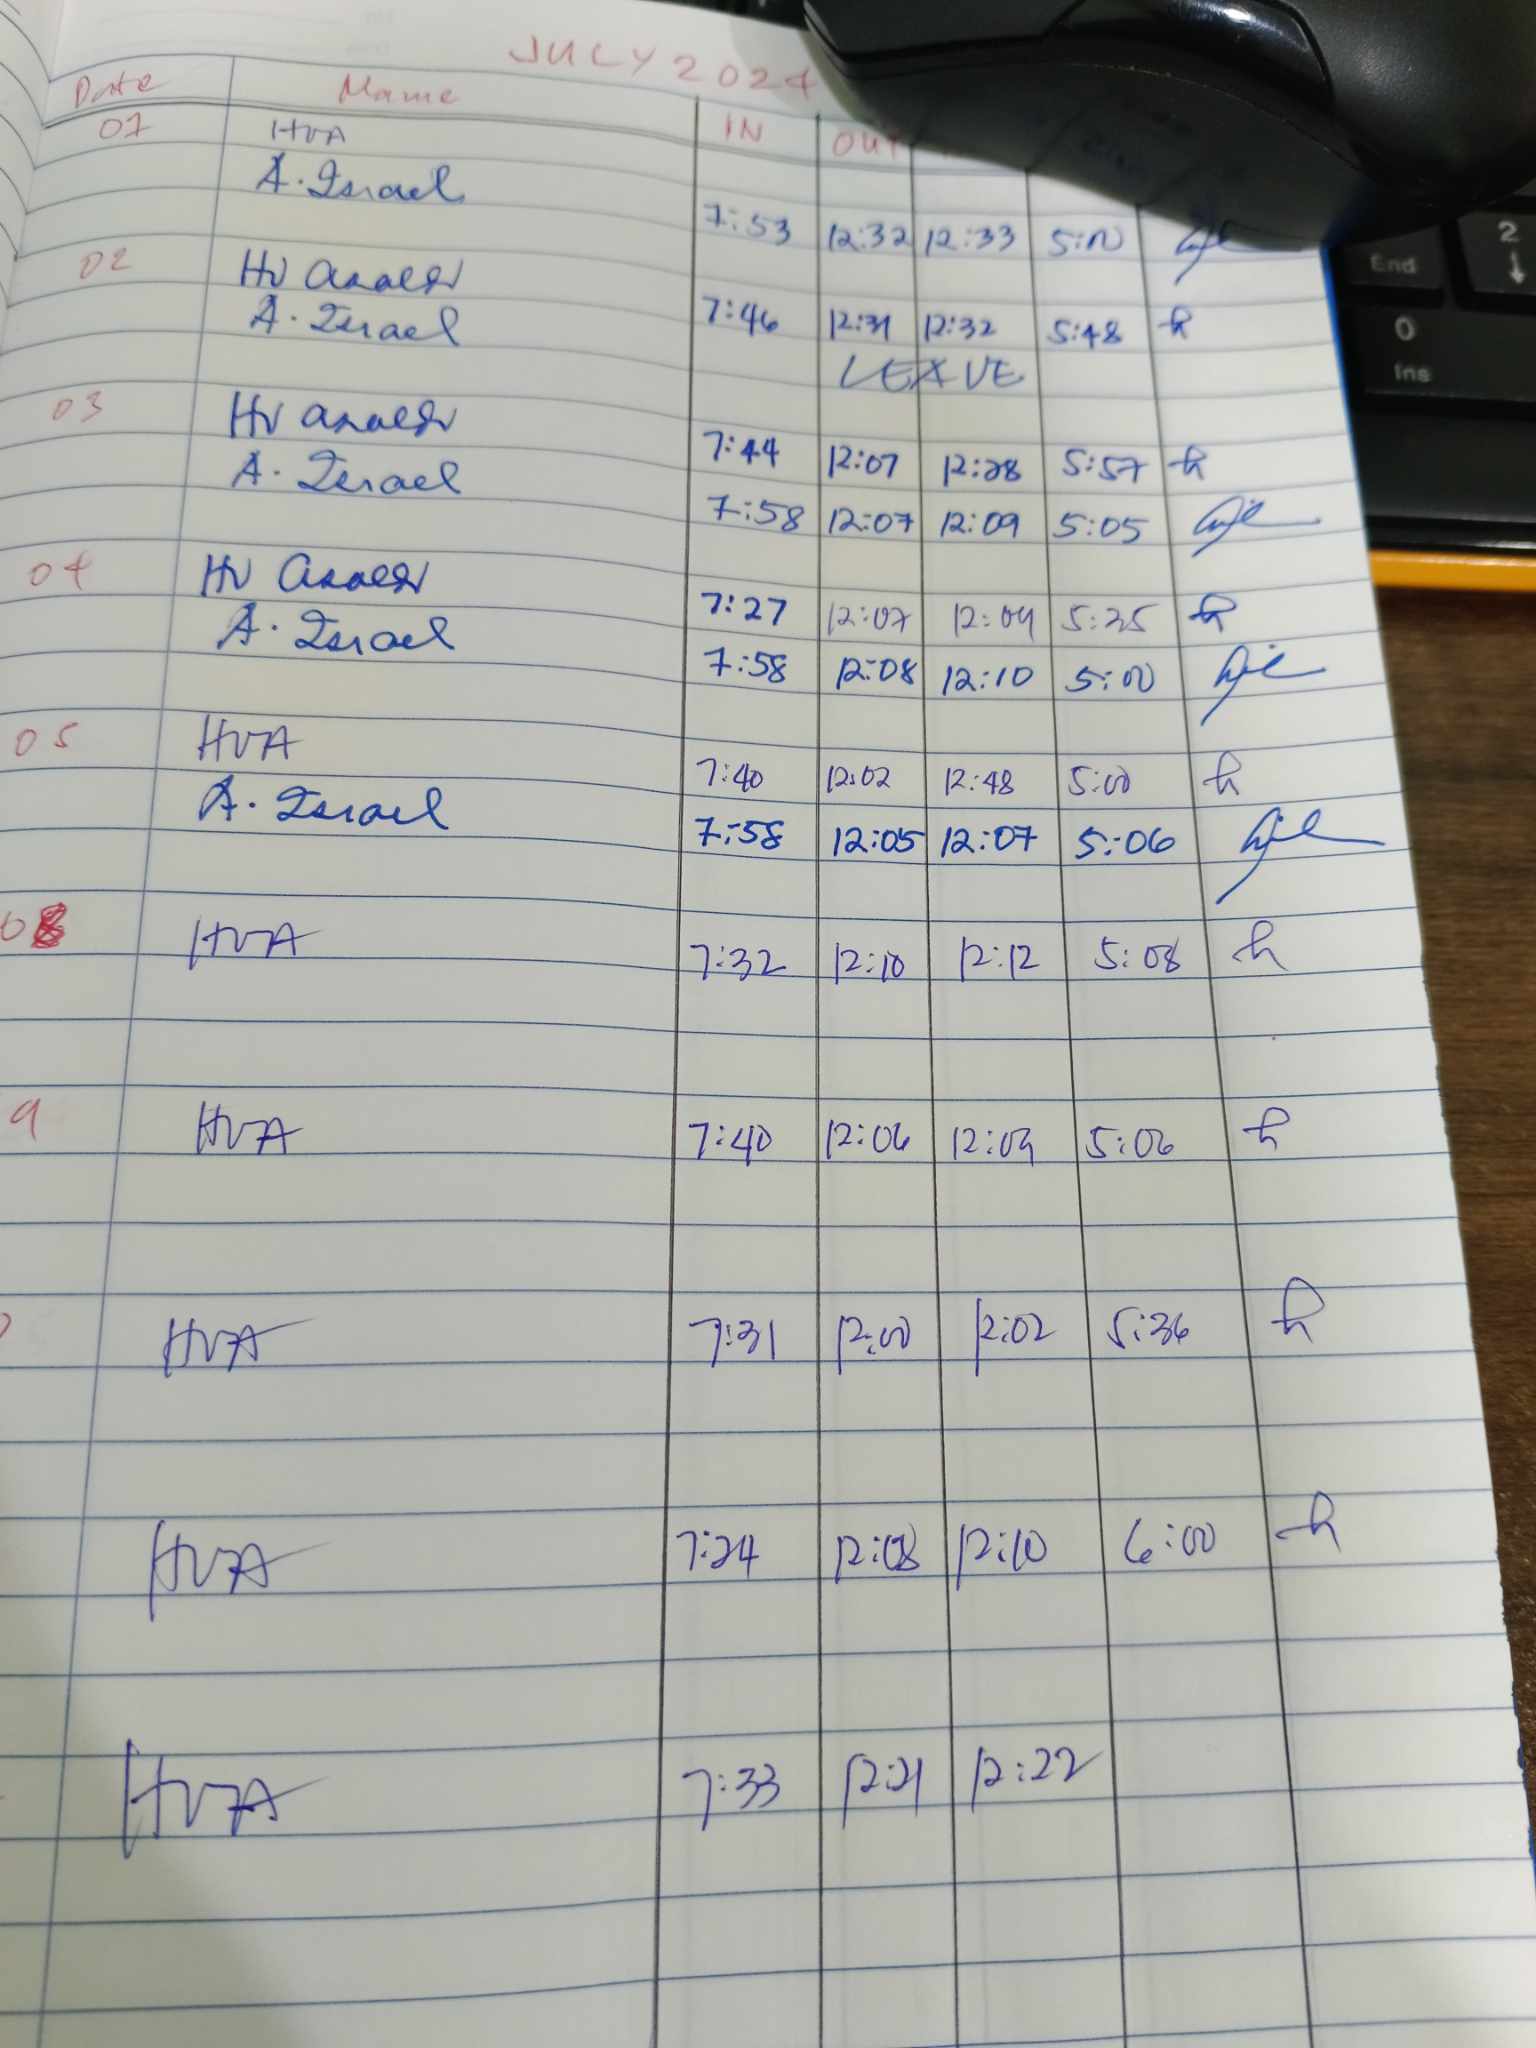 JULY 2024
Date Name IN OUT
01 HVA
A. Israel 7:53 12:32 12:33 5:00
02 HV 7:46 12:31 12:32 5:48
A. Israel LEAVE
03 HV 7:44 12:07 12:28 5:57
A. Israel 7:58 12:07 12:09 5:05
04 HV 7:27 12:07 12:09 5:35
A. Israel 7:58 12:08 12:10 5:00
05 HVA 7:40 12:02 12:48 5:00
A. Israel 7:58 12:05 12:07 5:06
08 HVA 7:32 12:10 12:12 5:08
9 HVA 7:40 12:06 12:09 5:06
HVA 7:31 12:00 12:02 5:36
HVA 7:24 12:08 12:10 6:00
HVA 7:33 12:21 12:22
End
2
↓
0
Ins